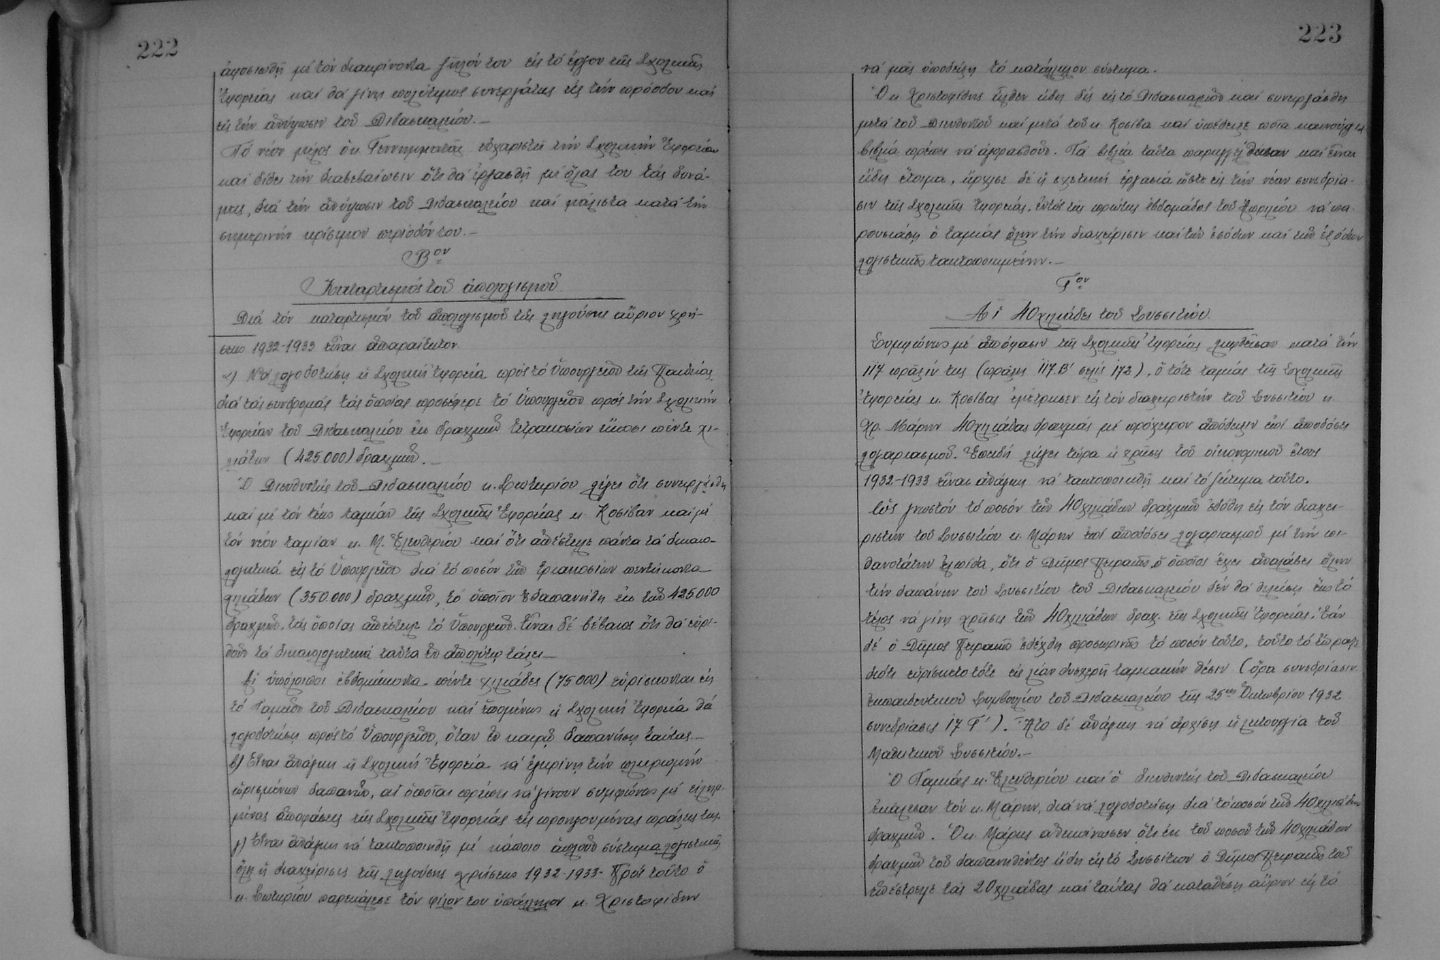 222
ἀφοσιωθῇ μὲ τὸν διακρίνοντα ζῆλόν του εἰς τὸ ἔργον τῆς Σχολικῆς
Ἐφορείας καὶ θὰ γίνῃ πολύτιμος συνεργάτης εἰς τὴν πρόοδον καὶ
εἰς τὴν ἀνύψωσιν τοῦ Διδασκαλείου.—
Τὸ νέον μέλος ὁ κ. Γεννηματᾶς εὐχαριστεῖ τὴν Σχολικὴν Ἐφορείαν
καὶ δίδει τὴν διαβεβαίωσιν ὅτι θὰ ἐργασθῇ μὲ ὅλας του τὰς δυνά-
μεις, διὰ τὴν ἀνύψωσιν τοῦ Διδασκαλείου καὶ μάλιστα κατὰ τὴν
σημερινὴν κρίσιμον περίοδόν του.—
Βον
Καταρτισμὸς τοῦ ἀπολογισμοῦ
Διὰ τὸν καταρτισμὸν τοῦ ἀπολογισμοῦ τῆς ληγούσης αὔριον χρή-
σεως 1932-1933 εἶναι ἀπαραίτητον.
α) Νὰ λογοδοτήσῃ ἡ Σχολικὴ Ἐφορεία πρὸς τὸ Ὑπουργεῖον τῆς Παιδείας
διὰ τὰς συνδρομὰς τὰς ὁποίας προσέφερε τὸ Ὑπουργεῖον πρὸς τὴν Σχολικὴν
Ἐφορείαν τοῦ Διδασκαλείου ἐκ δραχμῶν τετρακοσίων εἴκοσι πέντε χι-
λιάδων (425000) δραχμῶν.—
Ὁ Διευθυντὴς τοῦ Διδασκαλείου κ. Σωτηρίου λέγει ὅτι συνειργάσθη
καὶ μὲ τὸν τέως ταμίαν τῆς Σχολικῆς Ἐφορείας κ. Κοσίβαν καὶ μὲ
τὸν νέον ταμίαν κ. Μ. Ἐλευθερίου καὶ ὅτι ἀπέστειλε πάντα τὰ δικαιο-
λογητικὰ εἰς τὸ Ὑπουργεῖον διὰ τὸ ποσὸν τῶν τριακοσίων πεντήκοντα
χιλιάδων (350.000) δραχμῶν, τὸ ὁποῖον ἐδαπανήθη ἐκ τῶν 425000
δραχμῶν, τὰς ὁποίας ἀπέστειλε τὸ Ὑπουργεῖον. Εἶναι δὲ βέβαιος ὅτι θὰ εὑρε-
θοῦν τὰ δικαιολογητικὰ ταῦτα ἐν ἀπολύτῳ τάξει.—
Αἱ ὑπόλοιποι ἑβδομήκοντα πέντε χιλιάδες (75000) εὑρίσκονται εἰς
τὸ Ταμεῖον τοῦ Διδασκαλείου καὶ ἑπομένως ἡ Σχολικὴ Ἐφορεία θὰ
λογοδοτήσῃ πρὸς τὸ Ὑπουργεῖον, ὅταν ἐν καιρῷ δαπανήσῃ ταύτας.—
β) Εἶναι ἀνάγκη ἡ Σχολικὴ Ἐφορεία νὰ ἐγκρίνῃ τὴν πληρωμὴν
ὡρισμένων δαπανῶν, αἱ ὁποῖαι πρέπει νὰ γίνουν συμφώνως μὲ εἰλημ-
μένας ἀποφάσεις τῆς Σχολικῆς Ἐφορείας εἰς προηγουμένας πράξεις της.
γ) Εἶναι ἀνάγκη νὰ τακτοποιηθῇ μὲ κάποιο ἁπλοῦν σύστημα λογιστικῆς
ὅλη ἡ διαχείρισις τῆς ληγούσης χρήσεως 1932-1933. Πρὸς τοῦτο ὁ
κ. Σωτηρίου παρεκάλεσε τὸν φίλον του ὑπάλληλον κ. Χριστοφίδην
223
νὰ μᾶς ὑποδείξῃ τὸ κατάλληλον σύστημα.
Ὁ κ. Χριστοφίδης ἦλθεν ἤδη δὶς εἰς τὸ Διδασκαλεῖον καὶ συνειργάσθη
μετὰ τοῦ Διευθυντοῦ καὶ μετὰ τοῦ κ. Κοσίβα καὶ ὑπέδειξε ποῖα καινούργια
βιβλία πρέπει νὰ ἀγορασθοῦν. Τὰ βιβλία ταῦτα παρηγγέλθησαν καὶ εἶναι
ἤδη ἕτοιμα, ἤρχισε δὲ ἡ σχετικὴ ἐργασία ὥστε εἰς τὴν νέαν συνεδρία-
σιν τῆς Σχολικῆς Ἐφορείας, ἐντὸς τῆς πρώτης ἑβδομάδος τοῦ Ἀπριλίου νὰ πα-
ρουσιάσῃ ὁ ταμίας ὅλην τὴν διαχείρισιν καὶ τῶν ἐσόδων καὶ τῶν ἐξόδων
λογιστικῶς τακτοποιημένην.—
Γον
Αἱ 40 χιλιάδες τοῦ Συσσιτίου
Συμφώνως μὲ ἀπόφασιν τῆς Σχολικῆς Ἐφορείας ληφθεῖσαν κατὰ τὴν
117 πρᾶξίν της (πρᾶξις 117.Β' σελὶς 172), ὁ τότε ταμίας τῆς Σχολικῆς
Ἐφορείας κ. Κοσίβας ἐμέτρησεν εἰς τὸν διαχειριστὴν τοῦ Συσσιτίου κ.
Χρ. Μάρην 40 χιλιάδας δραχμὰς μὲ πρόχειρον ἀπόδειξιν ἐπὶ ἀποδόσει
λογαριασμοῦ. Ἐπειδὴ λήγει τώρα ἡ χρῆσις τοῦ οἰκονομικοῦ ἔτους
1932-1933 εἶναι ἀνάγκη νὰ τακτοποιηθῇ καὶ τὸ ζήτημα τοῦτο.
Ὡς γνωστὸν τὸ ποσὸν τῶν 40 χιλιάδων δραχμῶν ἐδόθη εἰς τὸν διαχει-
ριστὴν τοῦ Συσσιτίου κ. Μάρην ἐπὶ ἀποδόσει λογαριασμοῦ μὲ τὴν πι-
θανωτάτην ἐλπίδα, ὅτι ὁ Δῆμος Πειραιῶς, ὁ ὁποῖος ἔχει ἀναλάβει ὅλην
τὴν δαπάνην τοῦ Συσσιτίου τοῦ Διδασκαλείου δὲν θὰ θελήσῃ ἕως τὸ
τέλος νὰ γίνῃ χρῆσις τῶν 40 χιλιάδων δραχ. τῆς Σχολικῆς Ἐφορείας. Ἐὰν
δὲ ὁ Δῆμος Πειραιῶς ἐδέχθη προσωρινῶς τὸ ποσὸν τοῦτο, τοῦτο τὸ ἔπραξε
διότι εὑρίσκετο τότε εἰς λίαν δυσχερῆ ταμιακὴν θέσιν (ὅρα συνεδρίασιν
Ἐκπαιδευτικοῦ Συμβουλίου τοῦ Διδασκαλείου τῆς 25ης Ὀκτωβρίου 1932
συνεδρίασις 17 Γ'). Ἦτο δὲ ἀνάγκη νὰ ἀρχίσῃ ἡ λειτουργία τοῦ
Μαθητικοῦ Συσσιτίου.—
Ὁ Ταμίας κ. Ἐλευθερίου καὶ ὁ διευθυντὴς τοῦ Διδασκαλείου
ἐκάλεσαν τὸν κ. Μάρην, διὰ νὰ λογοδοτήσῃ διὰ τὸ ποσὸν τῶν 40 χιλιάδων
δραχμῶν. Ὁ κ. Μάρης ἀπεκάλυψεν ὅτι ἐκ τοῦ ποσοῦ τῶν 40 χιλιάδων
δραχμῶν τοῦ δαπανηθέντος ἤδη εἰς τὸ Συσσίτιον ὁ Δῆμος Πειραιῶς τοῦ
ἐπέστρεψε τὰς 20 χιλιάδας καὶ ταύτας θὰ καταθέσῃ αὔριον εἰς τὸ